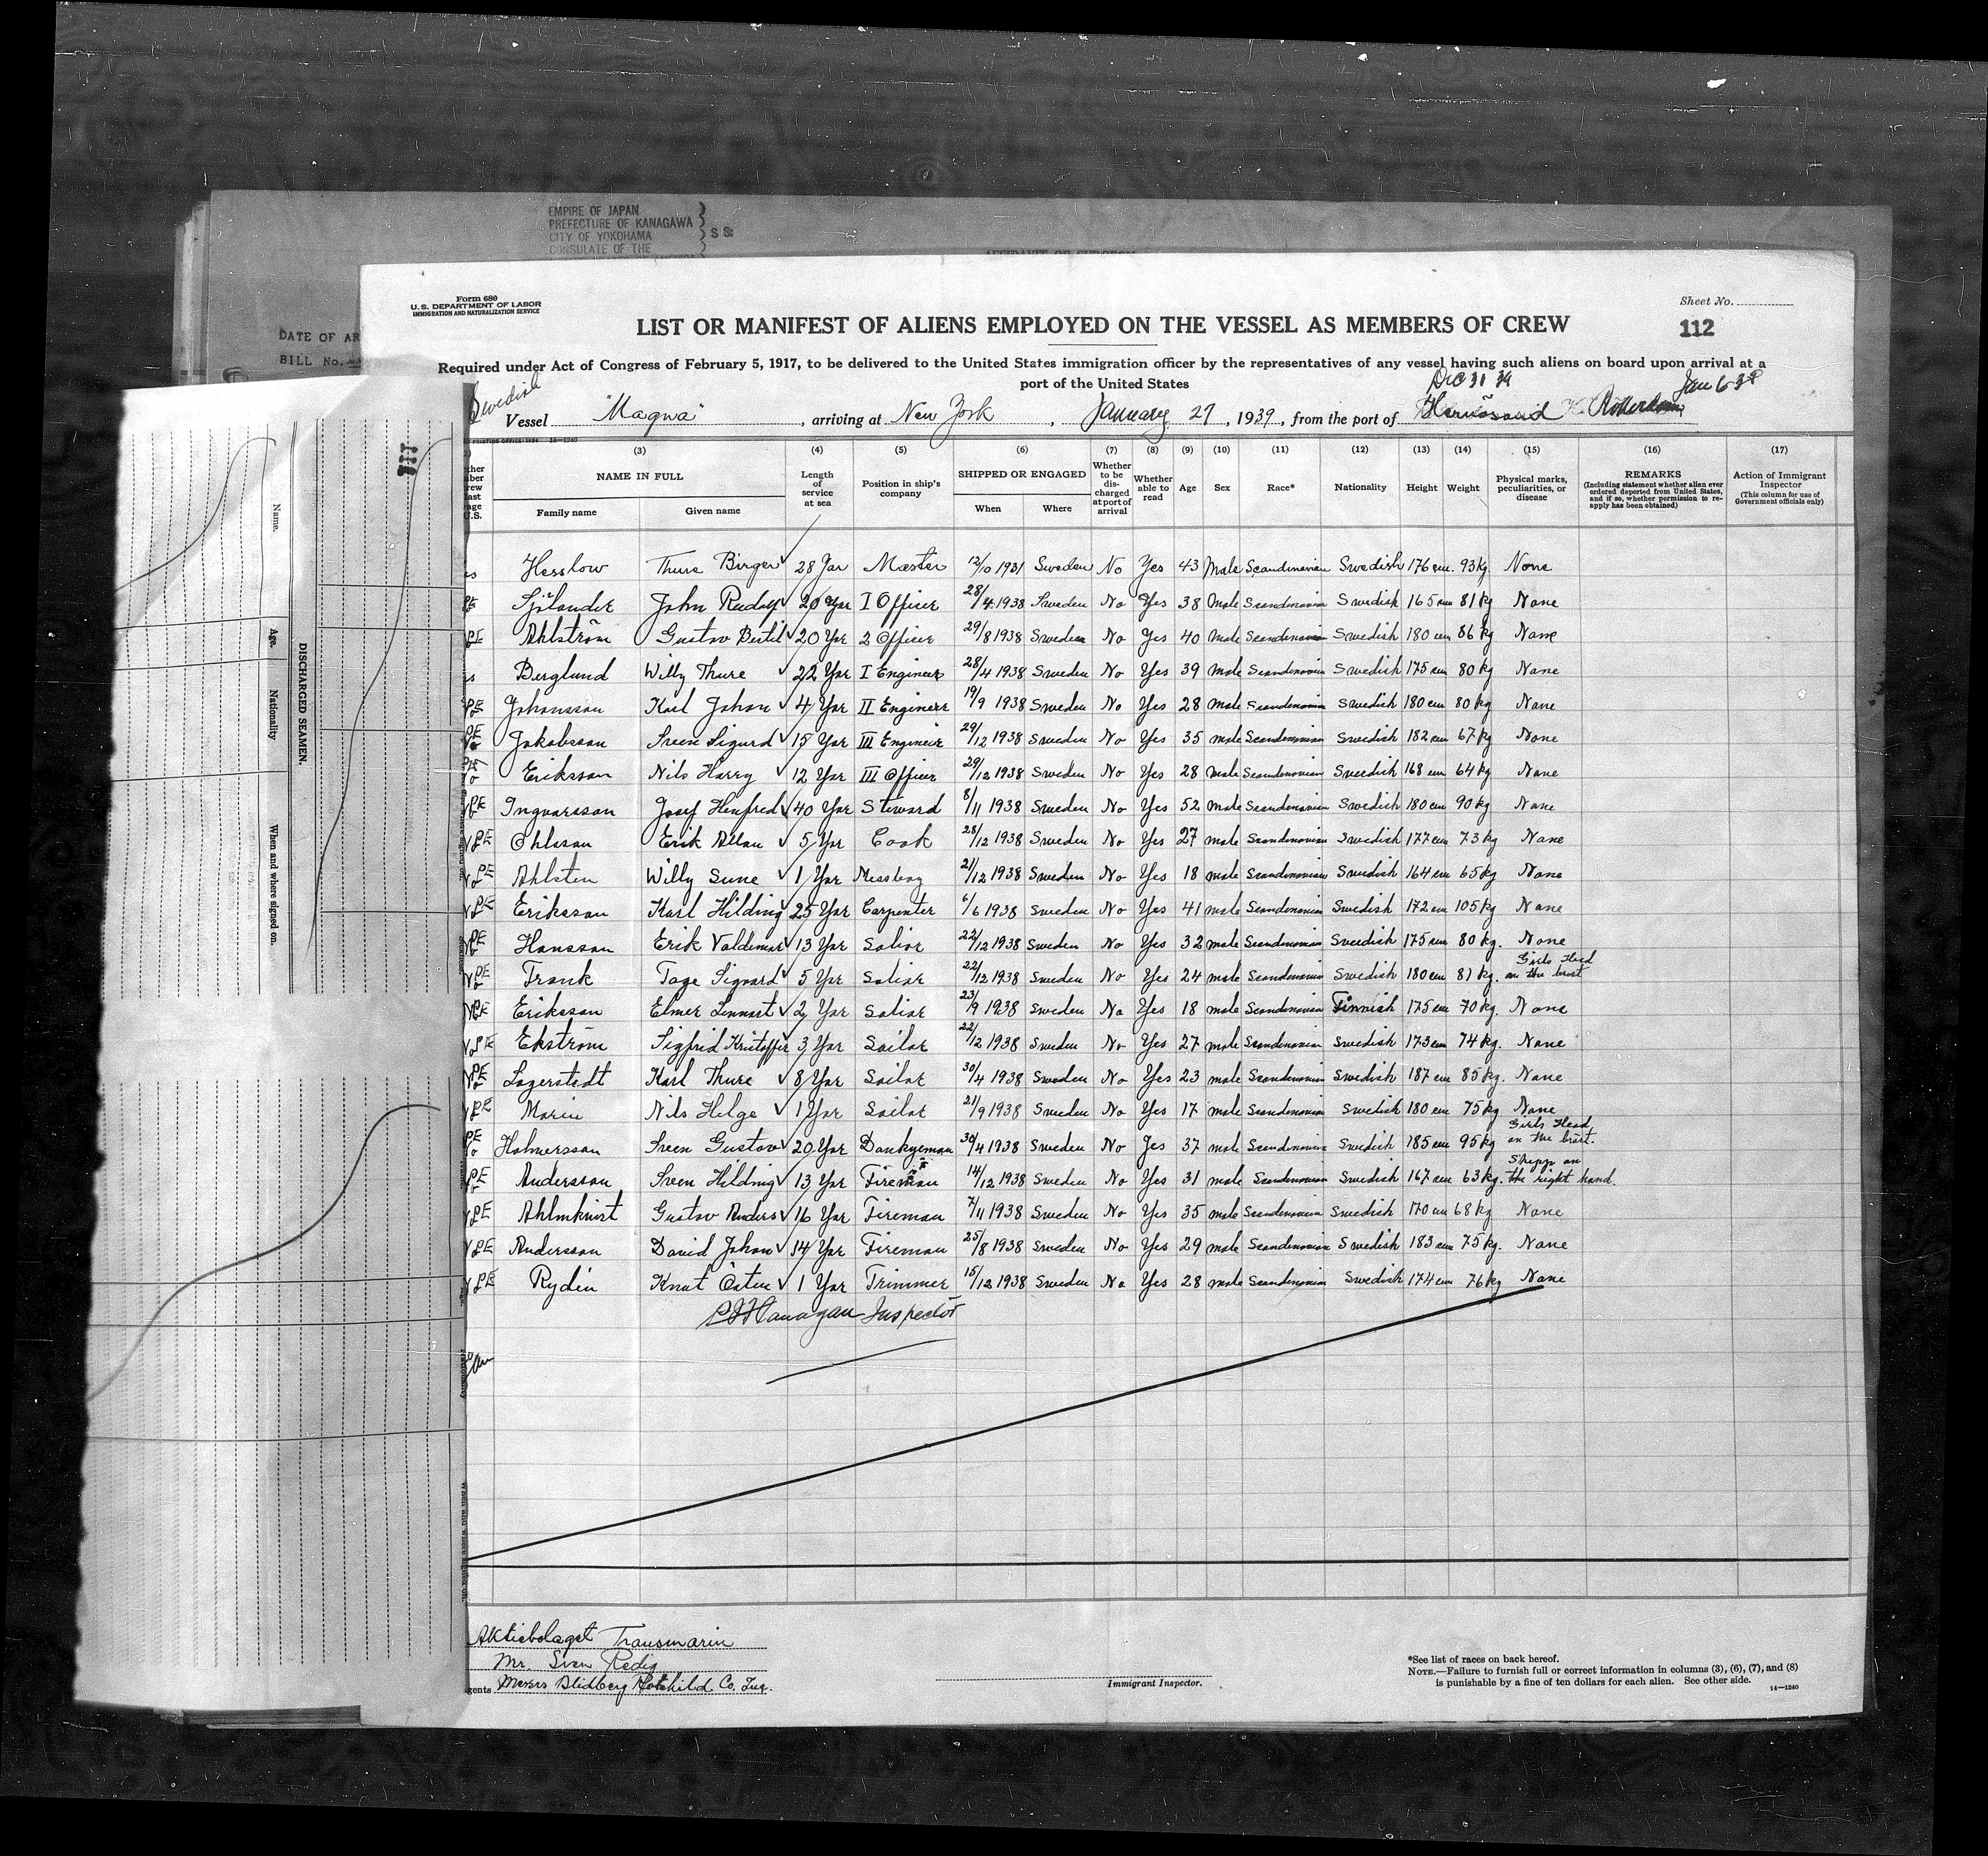 EMPIRE OF JAPAN
PREFECTURE OF KANAGAWA } SS
CITY OF YOKOHAMA
CONSULATE OF THE
DATE OF AR
BILL No.
Form 680
U.S. DEPARTMENT OF LABOR
IMMIGRATION AND NATURALIZATION SERVICE
Sheet No.
112
LIST OR MANIFEST OF ALIENS EMPLOYED ON THE VESSEL AS MEMBERS OF CREW
Required under Act of Congress of February 5, 1917, to be delivered to the United States immigration officer by the representatives of any vessel having such aliens on board upon arrival at a
port of the United States
Swedish
Vessel "Magwa", arriving at New York, January 27, 1939, from the port of Hernösand Rotterdam
(3) (4) (5) (6) (7) (8) (9) (10) (11) (12) (13) (14) (15) (16) (17)
NAME IN FULL
Family name Given name
Length of service at sea
Position in ship's company
SHIPPED OR ENGAGED
When Where
Whether to be discharged at port of arrival
Whether able to read
Age
Sex
Race*
Nationality
Height
Weight
Physical marks, peculiarities, or disease
REMARKS
(Including statement whether alien ever ordered deported from United States, and if so, whether permission to reapply has been obtained)
Action of Immigrant Inspector
(This column for use of Government officials only)
Hesslow Thure Birger 28 Yar Master 12/10 1931 Sweden No Yes 43 Male Scandinavian Swedish 176 cm. 93 kg. None
Sjölander John Rudolf 20 Yar I Officer 28/4 1938 Sweden No Yes 38 Male Scandinavian Swedish 165 cm 81 kg None
Ahlström Gustav Bertil 20 Yar 2 Officer 29/8 1938 Sweden No Yes 40 Male Scandinavian Swedish 180 cm 86 kg None
Berglund Willy Thure 22 Yar I Engineer 28/4 1938 Sweden No Yes 39 Male Scandinavian Swedish 175 cm 80 kg None
Johansson Karl Johan 4 Yar II Engineer 19/9 1938 Sweden No Yes 28 male Scandinavian Swedish 180 cm 80 kg None
Jakobsson Sven Sigurd 15 Yar III Engineer 29/12 1938 Sweden No Yes 35 male Scandinavian Swedish 182 cm 67 kg None
Eriksson Nils Harry 12 Yar III Officer 29/12 1938 Sweden No Yes 28 Male Scandinavian Swedish 168 cm 64 kg None
Ingvarsson Josef Henfred 40 Yar Steward 8/11 1938 Sweden No Yes 52 male Scandinavian Swedish 180 cm 90 kg None
Ohlsson Erik Allan 5 Yar Cook 28/12 1938 Sweden No Yes 27 male Scandinavian Swedish 177 cm 73 kg None
Ahlsten Willy Sune 1 Yar Messboy 21/12 1938 Sweden No Yes 18 male Scandinavian Swedish 164 cm 65 kg None
Eriksson Karl Hilding 25 Yar Carpenter 6/6 1938 Sweden No Yes 41 male Scandinavian Swedish 172 cm 105 kg None
Hansson Erik Valdemar 13 Yar Salior 22/12 1938 Sweden No Yes 32 male Scandinavian Swedish 175 cm 80 kg. None
Frank Tage Sigvard 5 Yar Salior 22/12 1938 Sweden No Yes 24 male Scandinavian Swedish 180 cm 81 kg. Girls Head on the brest
Eriksson Elmer Lennart 2 Yar Salior 23/9 1938 Sweden No Yes 18 male Scandinavian Finnish 175 cm 70 kg. None
Ekström Sigfrid Kristoffer 3 Yar Sailor 22/12 1938 Sweden No Yes 27 male Scandinavian Swedish 173 cm 74 kg. None
Lagerstedt Karl Thure 8 Yar Sailor 30/4 1938 Sweden No Yes 23 male Scandinavian Swedish 187 cm 85 kg. None
Morin Nils Helge 1 Yar Sailor 21/9 1938 Sweden No Yes 17 male Scandinavian Swedish 180 cm 75 kg None
Holmersson Sven Gustav 20 Yar Donkyeman 30/4 1938 Sweden No Yes 37 male Scandinavian Swedish 185 cm 95 kg Girls Head on the brest.
Andersson Sven Hilding 13 Yar Fireman 14/12 1938 Sweden No Yes 31 male Scandinavian Swedish 167 cm 63 kg. Shipp on the right hand.
Ahlmkvist Gustav Anders 16 Yar Fireman 7/11 1938 Sweden No Yes 35 male Scandinavian Swedish 170 cm 68 kg None
Andersson David Johan 14 Yar Fireman 25/8 1938 Sweden No Yes 29 male Scandinavian Swedish 183 cm 75 kg. None
Rydin Knut Östen 1 Yar Trimmer 15/12 1938 Sweden No Yes 28 male Scandinavian Swedish 174 cm 76 kg None
Flanagan Inspector
Aktiebolaget Transmarin
Mr. Sven Redig
Messrs Blidberg Rothchild Co. Inc.
Immigrant Inspector.
*See list of races on back hereof.
NOTE.—Failure to furnish full or correct information in columns (3), (6), (7), and (8)
is punishable by a fine of ten dollars for each alien. See other side.
14—1240
111
DISCHARGED SEAMEN.
Name. Age. Nationality When and where signed on.